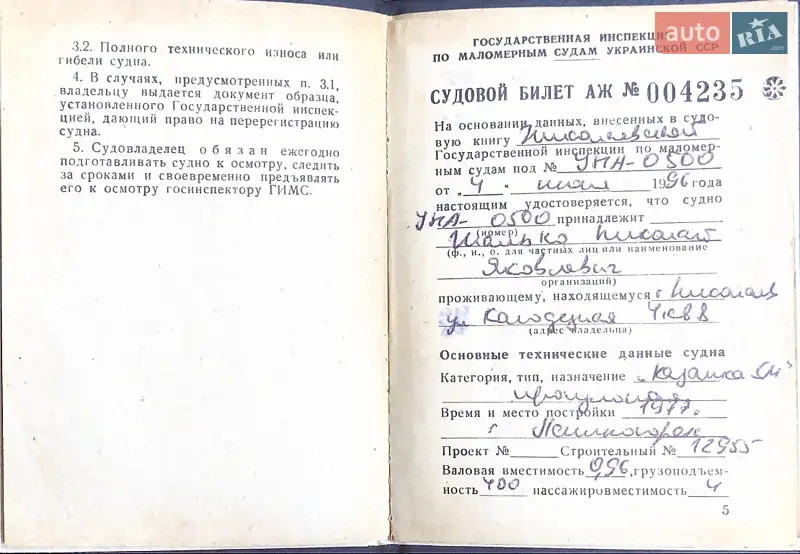 3.2. Полного технического износа или
гибели судна.
4. В случаях, предусмотренных п. 3.1,
владельцу выдается документ образца,
установленного Государственной инспек-
цией, дающий право на перерегистрацию
судна.
5. Судовладелец обязан ежегодно
подготавливать судно к осмотру, следить
за сроками и своевременно предъявлять
его к осмотру госинспектору ГИМС.
ГОСУДАРСТВЕННАЯ ИНСПЕКЦИЯ
ПО МАЛОМЕРНЫМ СУДАМ УКРАИНСКОЙ ССР
auto RIA.com
СУДОВОЙ БИЛЕТ АЖ № 004235
На основании данных, внесенных в судо-
вую книгу Николаевской
Государственной инспекции по маломер-
ным судам под № УНА-0500
от „4" июля 1996 года
настоящим удостоверяется, что судно
УНА-0500 принадлежит
(номер)
Николай
(ф., и., о. для частных лиц или наименование
Яковлевич
организаций)
проживающему, находящемуся г Николаев
ул Колодезная 4 кв 8
(адрес владельца)
Основные технические данные судна
Категория, тип, назначение „Казанка 5М"
прогулочная
Время и место постройки 1977г.
г
Проект № Строительный № 12955
Валовая вместимость 0,96, грузоподъем-
ность 400 пассажировместимость 4
5